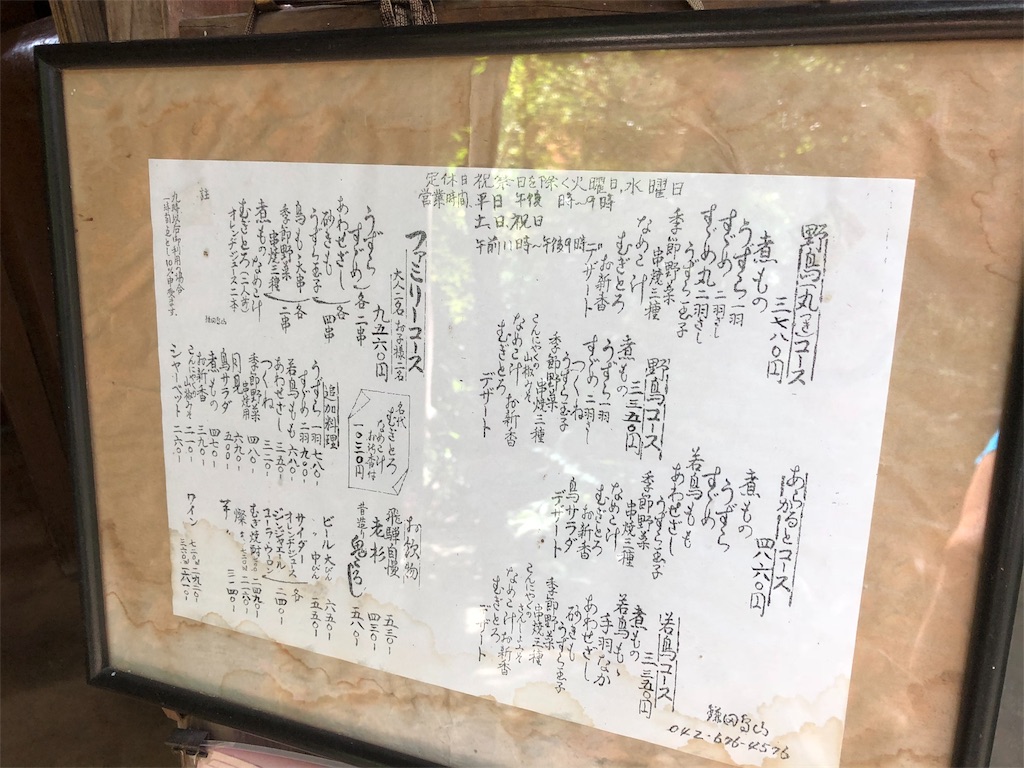 定休日 祝祭日を除く火曜日、水曜日
営業時間 平日 午後 時～9時
土、日、祝日
午前11時～午後9時
野鳥(丸つき)コース
三七八〇円
煮もの
うずら一羽
すずめ二羽ざし
すずめ丸二羽ざし
うずら玉子
季節野菜
串焼三種
なめこ汁
むぎとろ
お新香
デザート
野鳥コース
三三五〇円
煮もの
うずら一羽
すずめ二羽ざし
つくね
うずら玉子
季節野菜
串焼三種
こんにゃくの山椒みそ
なめこ汁 お新香
むぎとろ
デザート
あらかるとコース
四八六〇円
煮もの
うずら
すずめ
若鳥もも
あわせざし
うずら玉子
季節野菜
串焼三種
なめこ汁
むぎとろ
お新香
鳥サラダ
デザート
若鳥コース
三三五〇円
煮もの
手羽なか
若鳥もも
あわせざし
砂ぎも
うずら玉子
季節野菜
串焼三種
こんにゃくの
なめこ汁 お新香
むぎとろ
デザート
鎌田鳥山
042-676-4576
ファミリーコース
大人二名 お子様二名
九五六〇円
うずら
すずめ 各二串
あわせざし
砂ぎも 各
うずら玉子 四串
鳥もも大串 各
季節野菜
串焼三種 二串
煮もの なめこ汁
むぎとろ(二人分)
オレンヂジュース二本
註
九時以降御利用の場合
鎌田鳥山
名代
むぎとろ
なめこ汁
お新香付
一〇三〇円
追加料理
うずら 一羽 七八〇-
すずめ 二羽 九〇〇-
若鳥もも 六八〇-
あわせざし 三五〇-
つくね 三二〇-
季節野菜 四八〇-
月見 串焼用 六九〇-
鳥サラダ 五〇〇-
煮もの 四七〇-
お新香 三九〇-
こんにゃく山椒みそ 二一〇-
シャーベット 二六〇-
お飲物
飛騨自慢 五三〇-
老杉 四三〇-
昔造り 鬼ころし 五八〇-
ビール 大びん 六五〇-
〃 中びん 五五〇-
サイダー
オレンヂジュース 各
ジンジャエール 二四〇-
コーラ・ウーロン
むぎ焼酎 二四〇-
ワイン